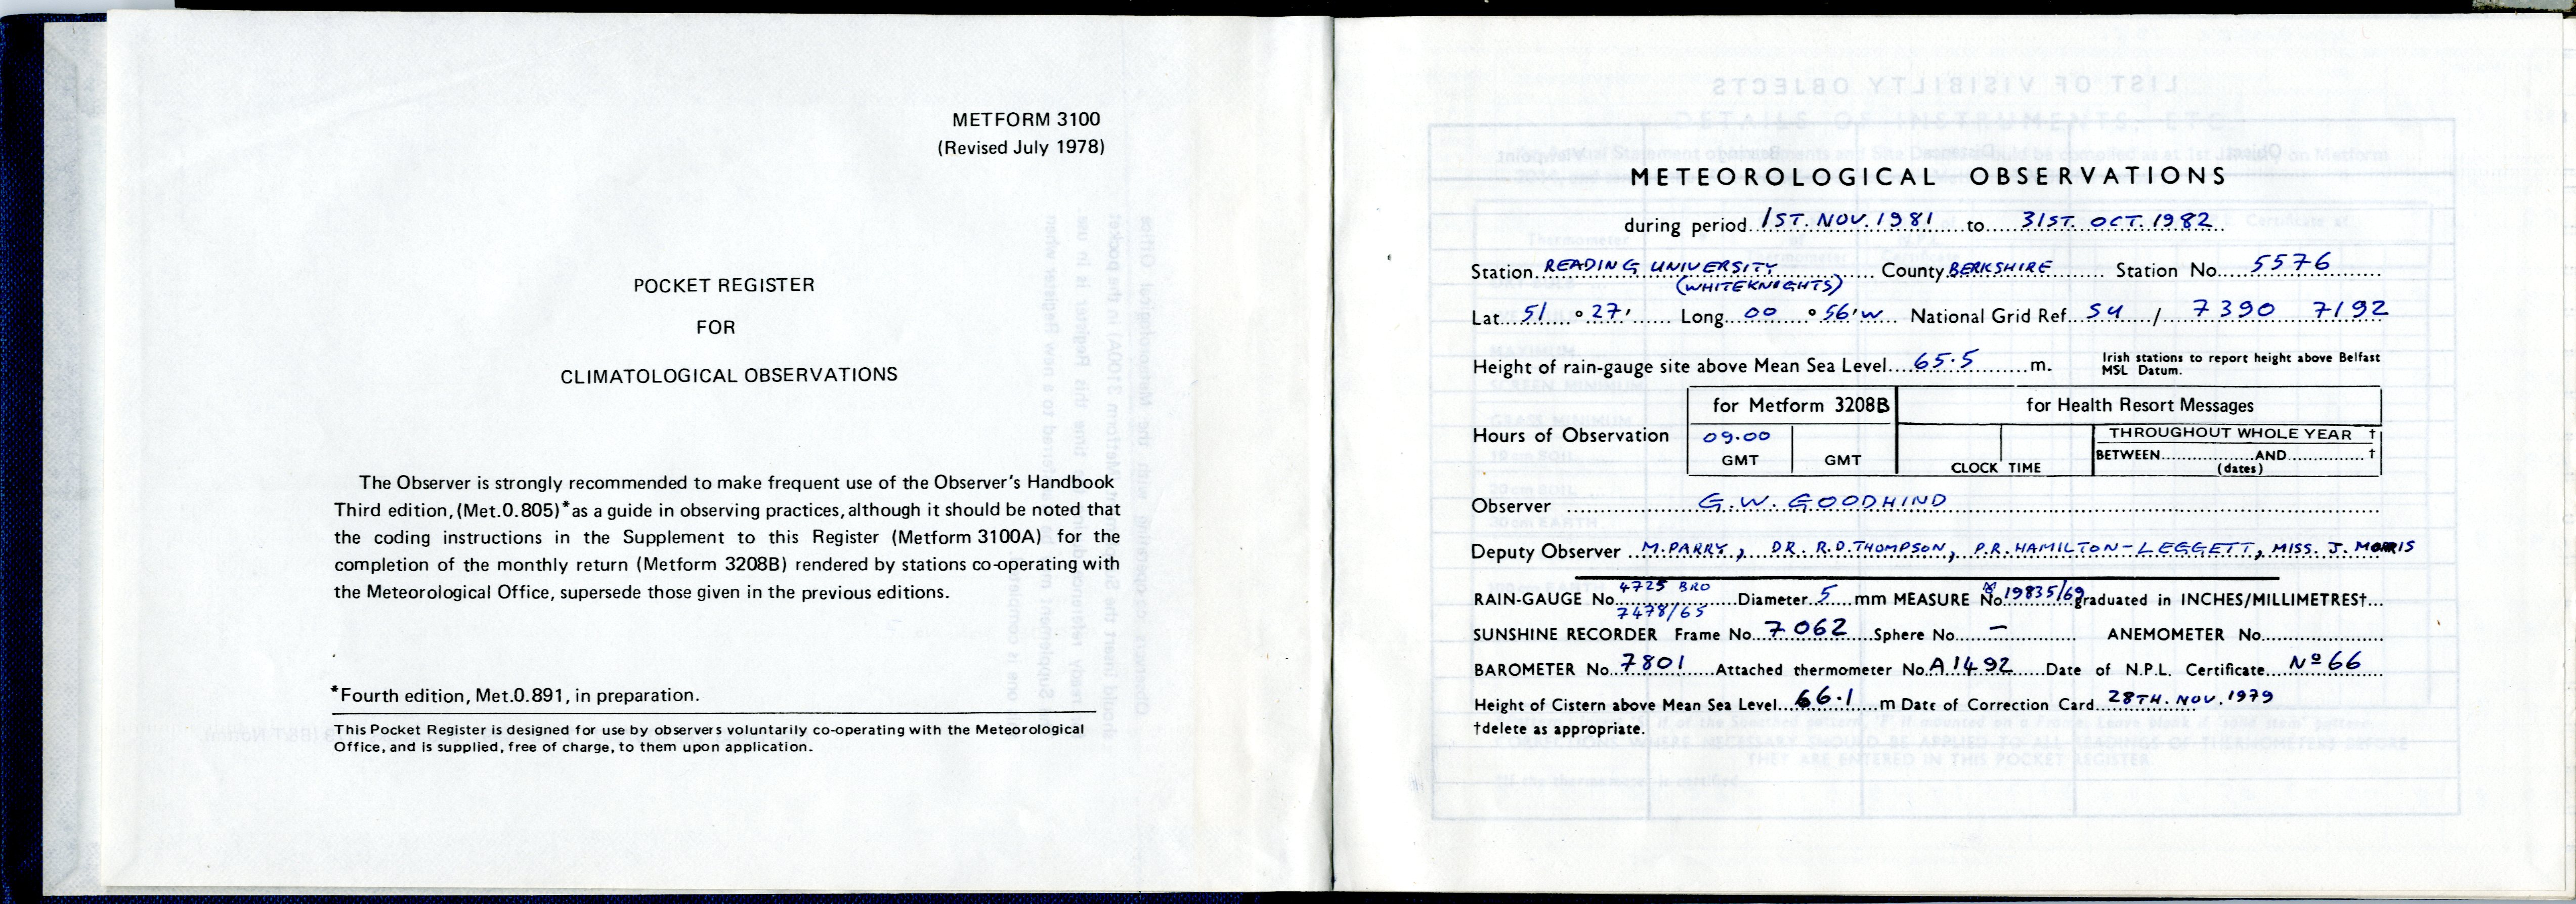 METFORM 3100
(Revised July 1978)
POCKET REGISTER
FOR
CLIMATOLOGICAL OBSERVATIONS
The Observer is strongly recommended to make frequent use of the Observer's Handbook
Third edition, (Met.0.805)* as a guide in observing practices, although it should be noted that
the coding instructions in the Supplement to this Register (Metform 3100A) for the
completion of the monthly return (Metform 3208B) rendered by stations co-operating with
the Meteorological Office, supersede those given in the previous editions.
*Fourth edition, Met.0.891, in preparation.
This Pocket Register is designed for use by observers voluntarily co-operating with the Meteorological
Office, and is supplied, free of charge, to them upon application.
METEOROLOGICAL OBSERVATIONS
during period 1ST. NOV. 1981 to 31ST. OCT. 1982
Station READING UNIVERSITY County BERKSHIRE Station No. 5576
(WHITEKNIGHTS)
Lat 51 ° 27' Long 00 ° 56' W National Grid Ref. SU / 7390 7192
Height of rain-gauge site above Mean Sea Level 65.5 m. Irish stations to report height above Belfast
MSL Datum.
for Metform 3208B for Health Resort Messages
Hours of Observation 09.00 THROUGHOUT WHOLE YEAR †
GMT GMT CLOCK TIME BETWEEN AND †
(dates)
Observer G. W. GOODHIND
Deputy Observer M. PARRY, DR. R.D. THOMPSON, P.R. HAMILTON-LEGGETT, MISS. J. MORRIS
4725 BRO
RAIN-GAUGE No. Diameter 5 mm MEASURE No. 19835/69 graduated in INCHES/MILLIMETRES†
7478/65
SUNSHINE RECORDER Frame No. 7062 Sphere No. – ANEMOMETER No.
BAROMETER No. 7801 Attached thermometer No. A1492 Date of N.P.L. Certificate Nº 66
Height of Cistern above Mean Sea Level 66.1 m Date of Correction Card 28TH. NOV. 1979
†delete as appropriate.